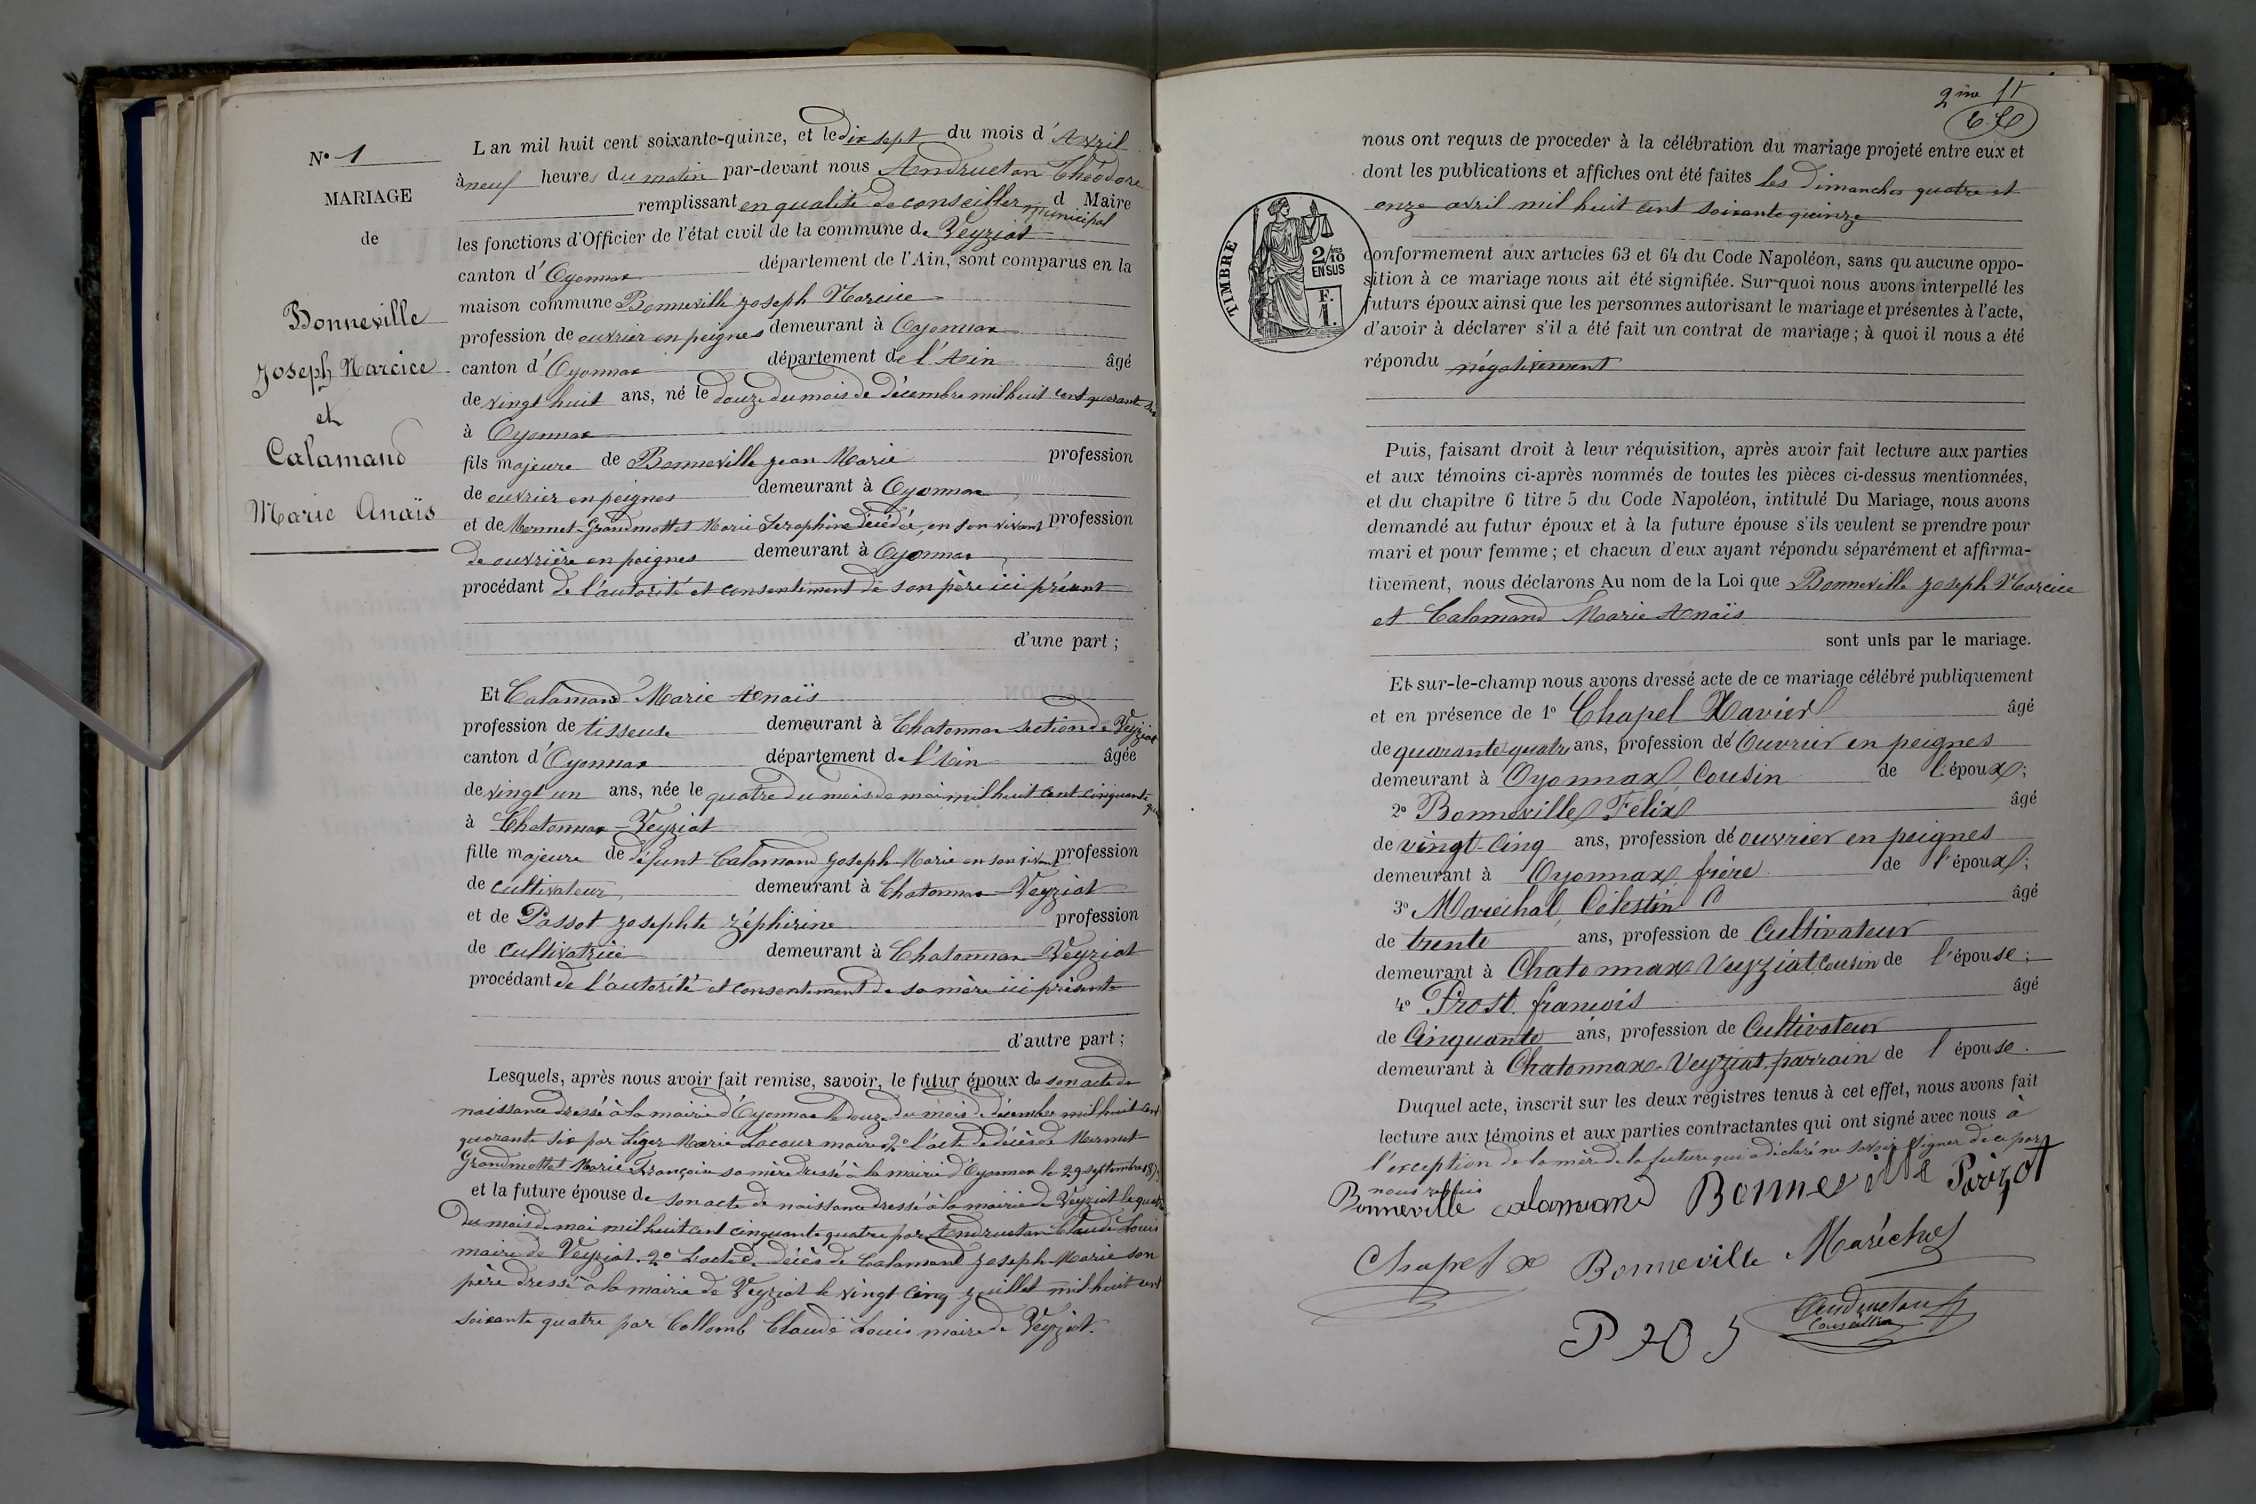 N° 1
MARIAGE
de
Bonneville
Joseph Narcice
et
Calamand
Marie Anaïs
L'an mil huit cent soixante-quinze, et le dix sept du mois d'Avril
à neuf heures du matin par-devant nous Andruetan Théodore
remplissant en qualité de conseiller municipal d Maire
les fonctions d'Officier de l'état civil de la commune de Veyziat
canton d'Oyonnax département de l'Ain, sont comparus en la
maison commune Bonneville Joseph Narcice
profession de ouvrier en peignes demeurant à Oyonnax
canton d'Oyonnax département de l'Ain âgé
de vingt huit ans, né le douze du mois de décembre mil huit cent quarante six
à Oyonnax
fils majeure de Bonneville Jean Marie profession
de ouvrier en peignes demeurant à Oyonnax
et de Mermet-Grandmottet Marie Seraphine décédée, en son vivant profession
de ouvrière en peignes demeurant à Oyonnax
procédant de l'autorité et consentement de son père ici présent
d'une part ;
Et Calamand Marie Anaïs
profession de tisseuse demeurant à Chatonnax section de Veyziat
canton d'Oyonnax département de l'Ain âgée
de vingt un ans, née le quatre du mois de mai mil huit cent cinquante quatre
à Chatonnax-Veyziat
fille majeure de défunt Calamand Joseph-Marie en son vivant profession
de cultivateur demeurant à Chatonnax-Veyziat
et de Passot Josephte Zéphirine profession
de cultivatrice demeurant à Chatonnax-Veyziat
procédant de l'autorité et consentement de sa mère ici présente
d'autre part ;
Lesquels, après nous avoir fait remise, savoir, le futur époux de son acte de
naissance dressé à la mairie d'Oyonnax le douze du mois de décembre mil huit cent
quarante six par Léger Marie Lacour maire 2° l'acte de décès de Mermet-
Grandmottet Marie Françoise sa mère dressé à la mairie d'Oyonnax le 29 septembre
et la future épouse de son acte de naissance dressé à la mairie de Veyziat le quatre
du mois de mai mil huit cent cinquante quatre par Andruetan Claude Louis
maire de Veyziat. 2° L'acte de décès de Calamand Joseph-Marie son
père dressé à la mairie de Veyziat le vingt cinq juillet mil huit cent
soixante quatre par Collomb Claude Louis maire de Veyziat.
2me
TIMBRE
2/10 ES
EN SUS
F.
1.
nous ont requis de proceder à la célébration du mariage projeté entre eux et
dont les publications et affiches ont été faites les dimanches quatre et
onze avril mil huit cent soixante quinze
conformement aux articles 63 et 64 du Code Napoléon, sans qu'aucune oppo-
sition à ce mariage nous ait été signifiée. Sur-quoi nous avons interpellé les
futurs époux ainsi que les personnes autorisant le mariage et présentes à l'acte,
d'avoir à déclarer s'il a été fait un contrat de mariage ; à quoi il nous a été
répondu négativement
Puis, faisant droit à leur réquisition, après avoir fait lecture aux parties
et aux témoins ci-après nommés de toutes les pièces ci-dessus mentionnées,
et du chapitre 6 titre 5 du Code Napoléon, intitulé Du Mariage, nous avons
demandé au futur époux et à la future épouse s'ils veulent se prendre pour
mari et pour femme ; et chacun d'eux ayant répondu séparément et affirma-
tivement, nous déclarons Au nom de la Loi que Bonneville Joseph Narcice
et Calamand Marie Anaïs
sont unis par le mariage.
Et sur-le-champ nous avons dressé acte de ce mariage célébré publiquement
et en présence de 1° Chapel Xavier âgé
de quarante quatre ans, profession de Ouvrier en peignes
demeurant à Oyonnax, Cousin de l'époux ;
2° Bonneville Félix âgé
de vingt-cinq ans, profession de ouvrier en peignes
demeurant à Oyonnax, frère de l'époux ;
3° Maréchal, Célestin âgé
de trente ans, profession de Cultivateur
demeurant à Chatonnax-Veyziat cousin de l'épouse ;
4° Prost francois âgé
de Cinquante ans, profession de Cultivateur
demeurant à Chatonnax-Veyziat, parrain de l'épouse.
Duquel acte, inscrit sur les deux régistres tenus à cet effet, nous avons fait
lecture aux témoins et aux parties contractantes qui ont signé avec nous à
l'exception de la mère de la future qui a déclaré ne savoir signer de ce par
nous requis
Bonneville calamand Bonneville Parizot
Chapel x Bonneville Maréchal
Andruetan
Conseiller